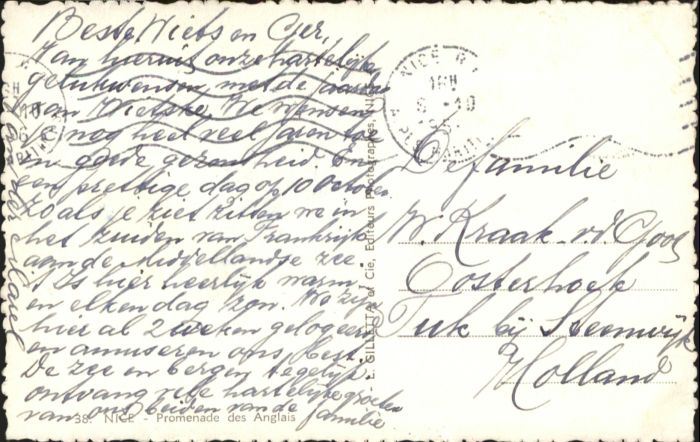 Beste Wiets en Ger,
Van hieruit onze hartelijke
gelukwensen met de jaardag
van Wietske. We wensen
je nog heel veel jaren toe
in goede gezondheid. En
een prettige dag op 10 October
Zoals je ziet zitten we in
het zuiden van Frankrijk
aan de Middellandse zee
. Is hier heerlijk warm
en elken dag zon. We zijn
hier al 2 weken gelogeerd
en amuseren ons best.
De zee en bergen tegelijk.
ontvang vele hartelijke groeten
van ons beiden van de familie
38. NICE - Promenade des Anglais
- E. GILLETTA et Cie, Editeurs Photographes, NICE
NICE
18H
6-10
De familie
W. Kraak v.d. Gooi
Oosterhoek
Tuk bij Steenwijk
Holland